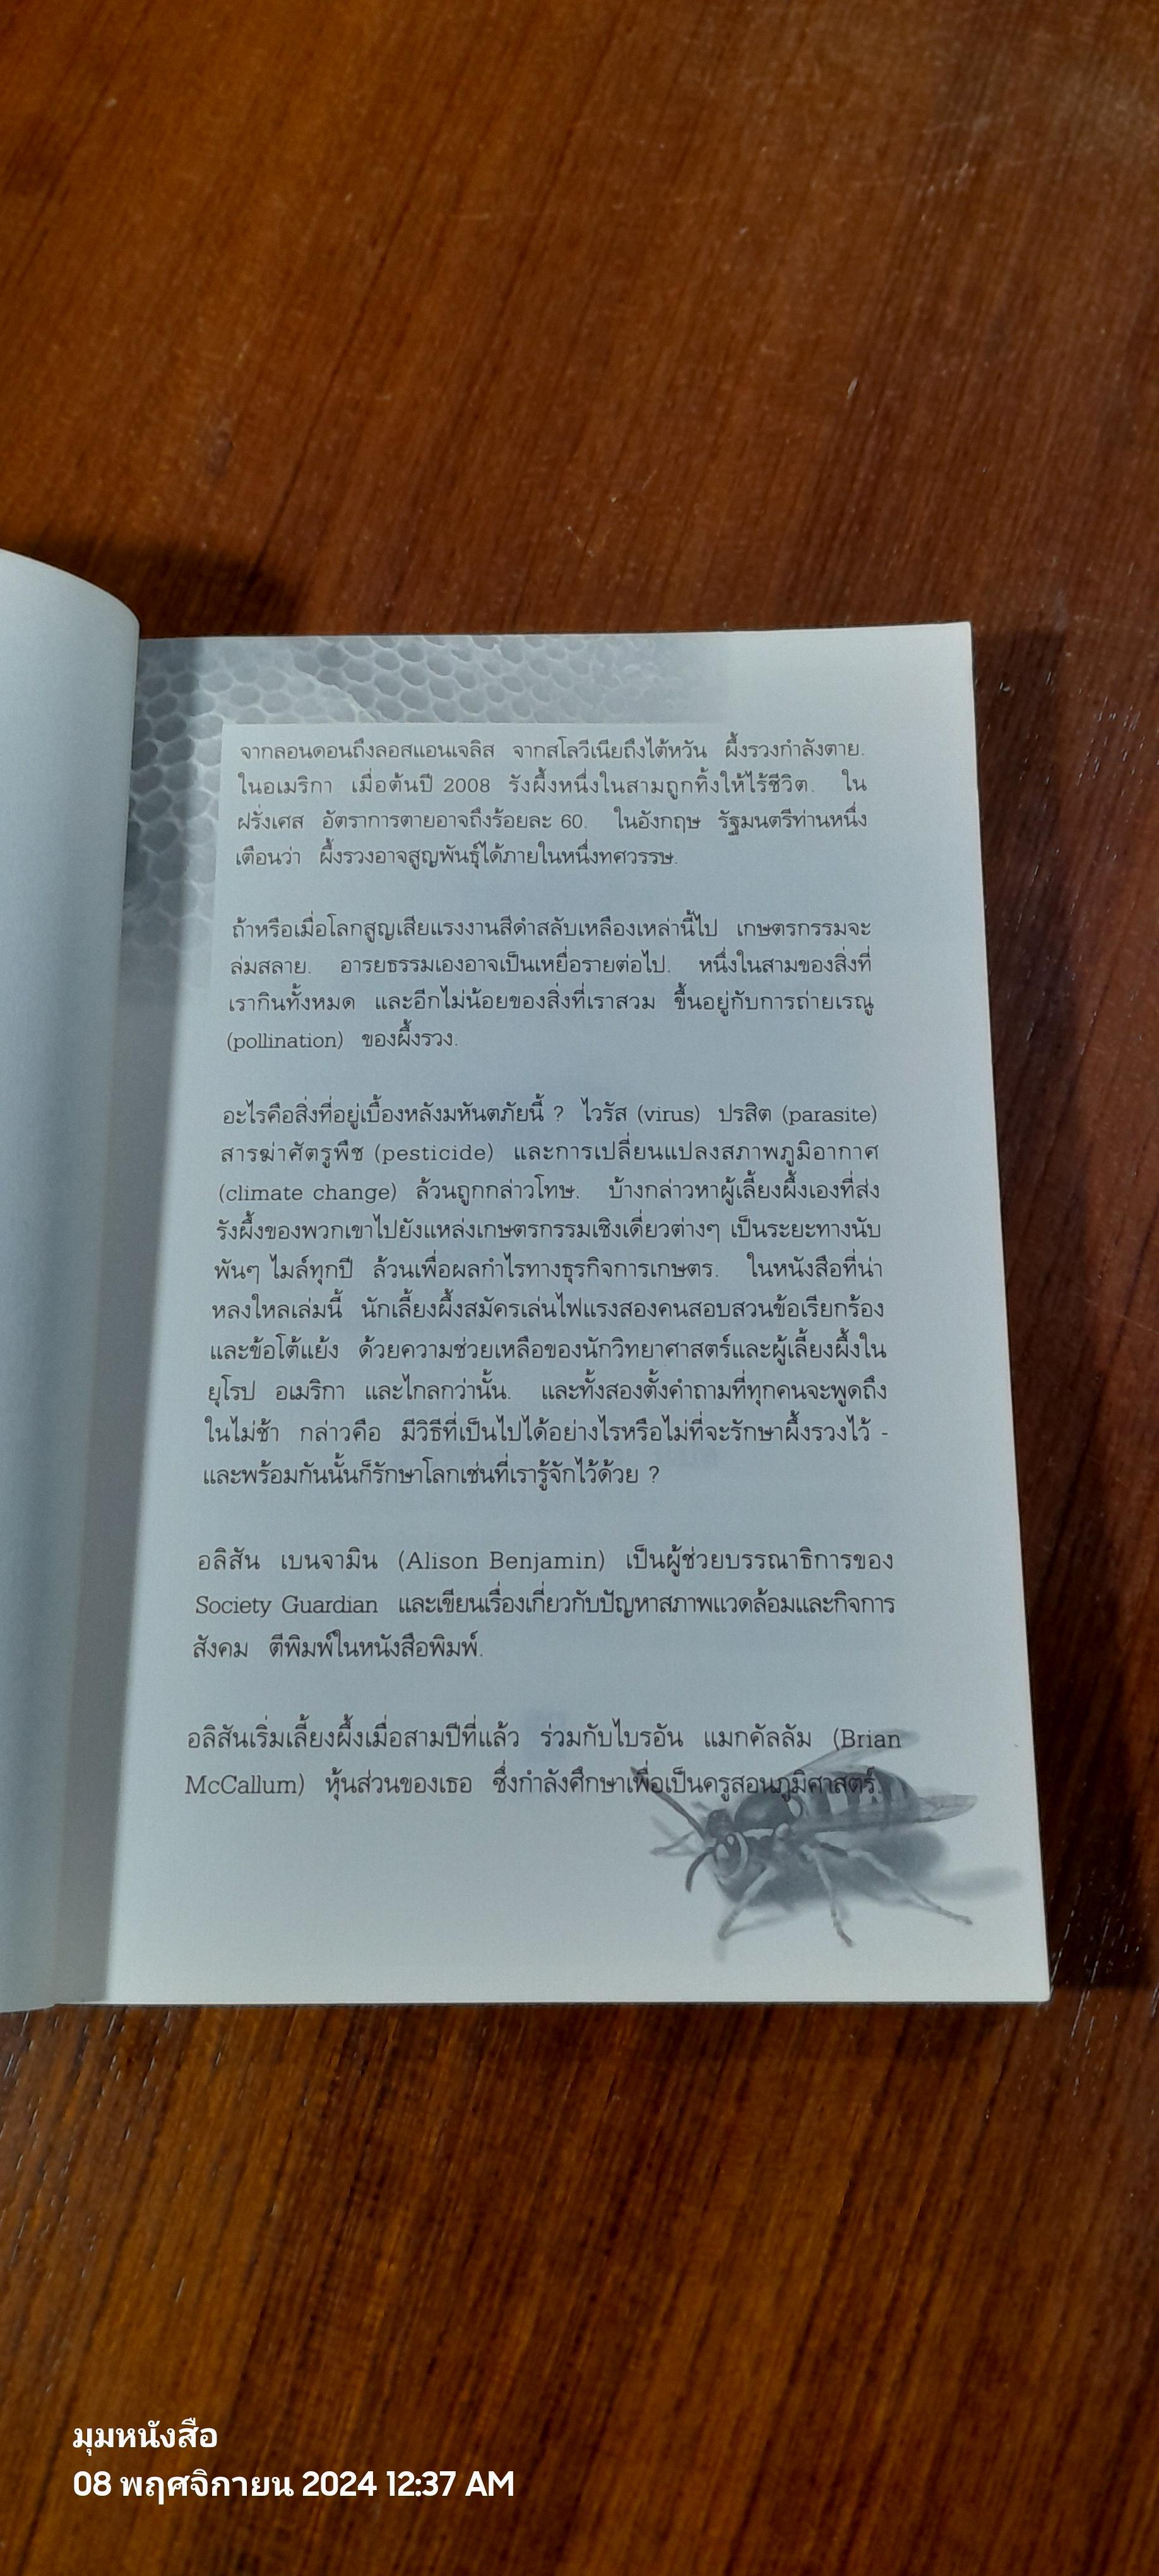 จากลอนดอนถึงลอสแอนเจลิส จากสโลวีเนียถึงไต้หวัน ผึ้งรวงกำลังตาย.
ในอเมริกา เมื่อต้นปี 2008 รังผึ้งหนึ่งในสามถูกทิ้งให้ไร้ชีวิต. ใน
ฝรั่งเศส อัตราการตายอาจถึงร้อยละ 60. ในอังกฤษ รัฐมนตรีท่านหนึ่ง
เตือนว่า ผึ้งรวงอาจสูญพันธุ์ได้ภายในหนึ่งทศวรรษ.
ถ้าหรือเมื่อโลกสูญเสียแรงงานสีดำสลับเหลืองเหล่านี้ไป เกษตรกรรมจะ
ล่มสลาย. อารยธรรมเองอาจเป็นเหยื่อรายต่อไป. หนึ่งในสามของสิ่งที่
เรากินทั้งหมด และอีกไม่น้อยของสิ่งที่เราสวม ขึ้นอยู่กับการถ่ายเรณู
(pollination) ของผึ้งรวง.
อะไรคือสิ่งที่อยู่เบื้องหลังมหันตภัยนี้ ? ไวรัส (virus) ปรสิต (parasite)
สารฆ่าศัตรูพืช (pesticide) และการเปลี่ยนแปลงสภาพภูมิอากาศ
(climate change) ล้วนถูกกล่าวโทษ. บ้างกล่าวหาผู้เลี้ยงผึ้งเองที่ส่ง
รังผึ้งของพวกเขาไปยังแหล่งเกษตรกรรมเชิงเดี่ยวต่างๆ เป็นระยะทางนับ
พันๆ ไมล์ทุกปี ล้วนเพื่อผลกำไรทางธุรกิจการเกษตร. ในหนังสือที่น่า
หลงใหลเล่มนี้ นักเลี้ยงผึ้งสมัครเล่นไฟแรงสองคนสอบสวนข้อเรียกร้อง
และข้อโต้แย้ง ด้วยความช่วยเหลือของนักวิทยาศาสตร์และผู้เลี้ยงผึ้งใน
ยุโรป อเมริกา และไกลกว่านั้น. และทั้งสองตั้งคำถามที่ทุกคนจะพูดถึง
ในไม่ช้า กล่าวคือ มีวิธีที่เป็นไปได้อย่างไรหรือไม่ที่จะรักษาผึ้งรวงไว้ -
และพร้อมกันนั้นก็รักษาโลกเช่นที่เรารู้จักไว้ด้วย ?
อลิสัน เบนจามิน (Alison Benjamin) เป็นผู้ช่วยบรรณาธิการของ
Society Guardian และเขียนเรื่องเกี่ยวกับปัญหาสภาพแวดล้อมและกิจการ
สังคม ตีพิมพ์ในหนังสือพิมพ์.
อลิสันเริ่มเลี้ยงผึ้งเมื่อสามปีที่แล้ว ร่วมกับไบรอัน แมกคัลลัม (Brian
McCallum) หุ้นส่วนของเธอ ซึ่งกำลังศึกษาเพื่อเป็นครูสอนภูมิศาสตร์.
มุมหนังสือ
08 พฤศจิกายน 2024 12:37 AM